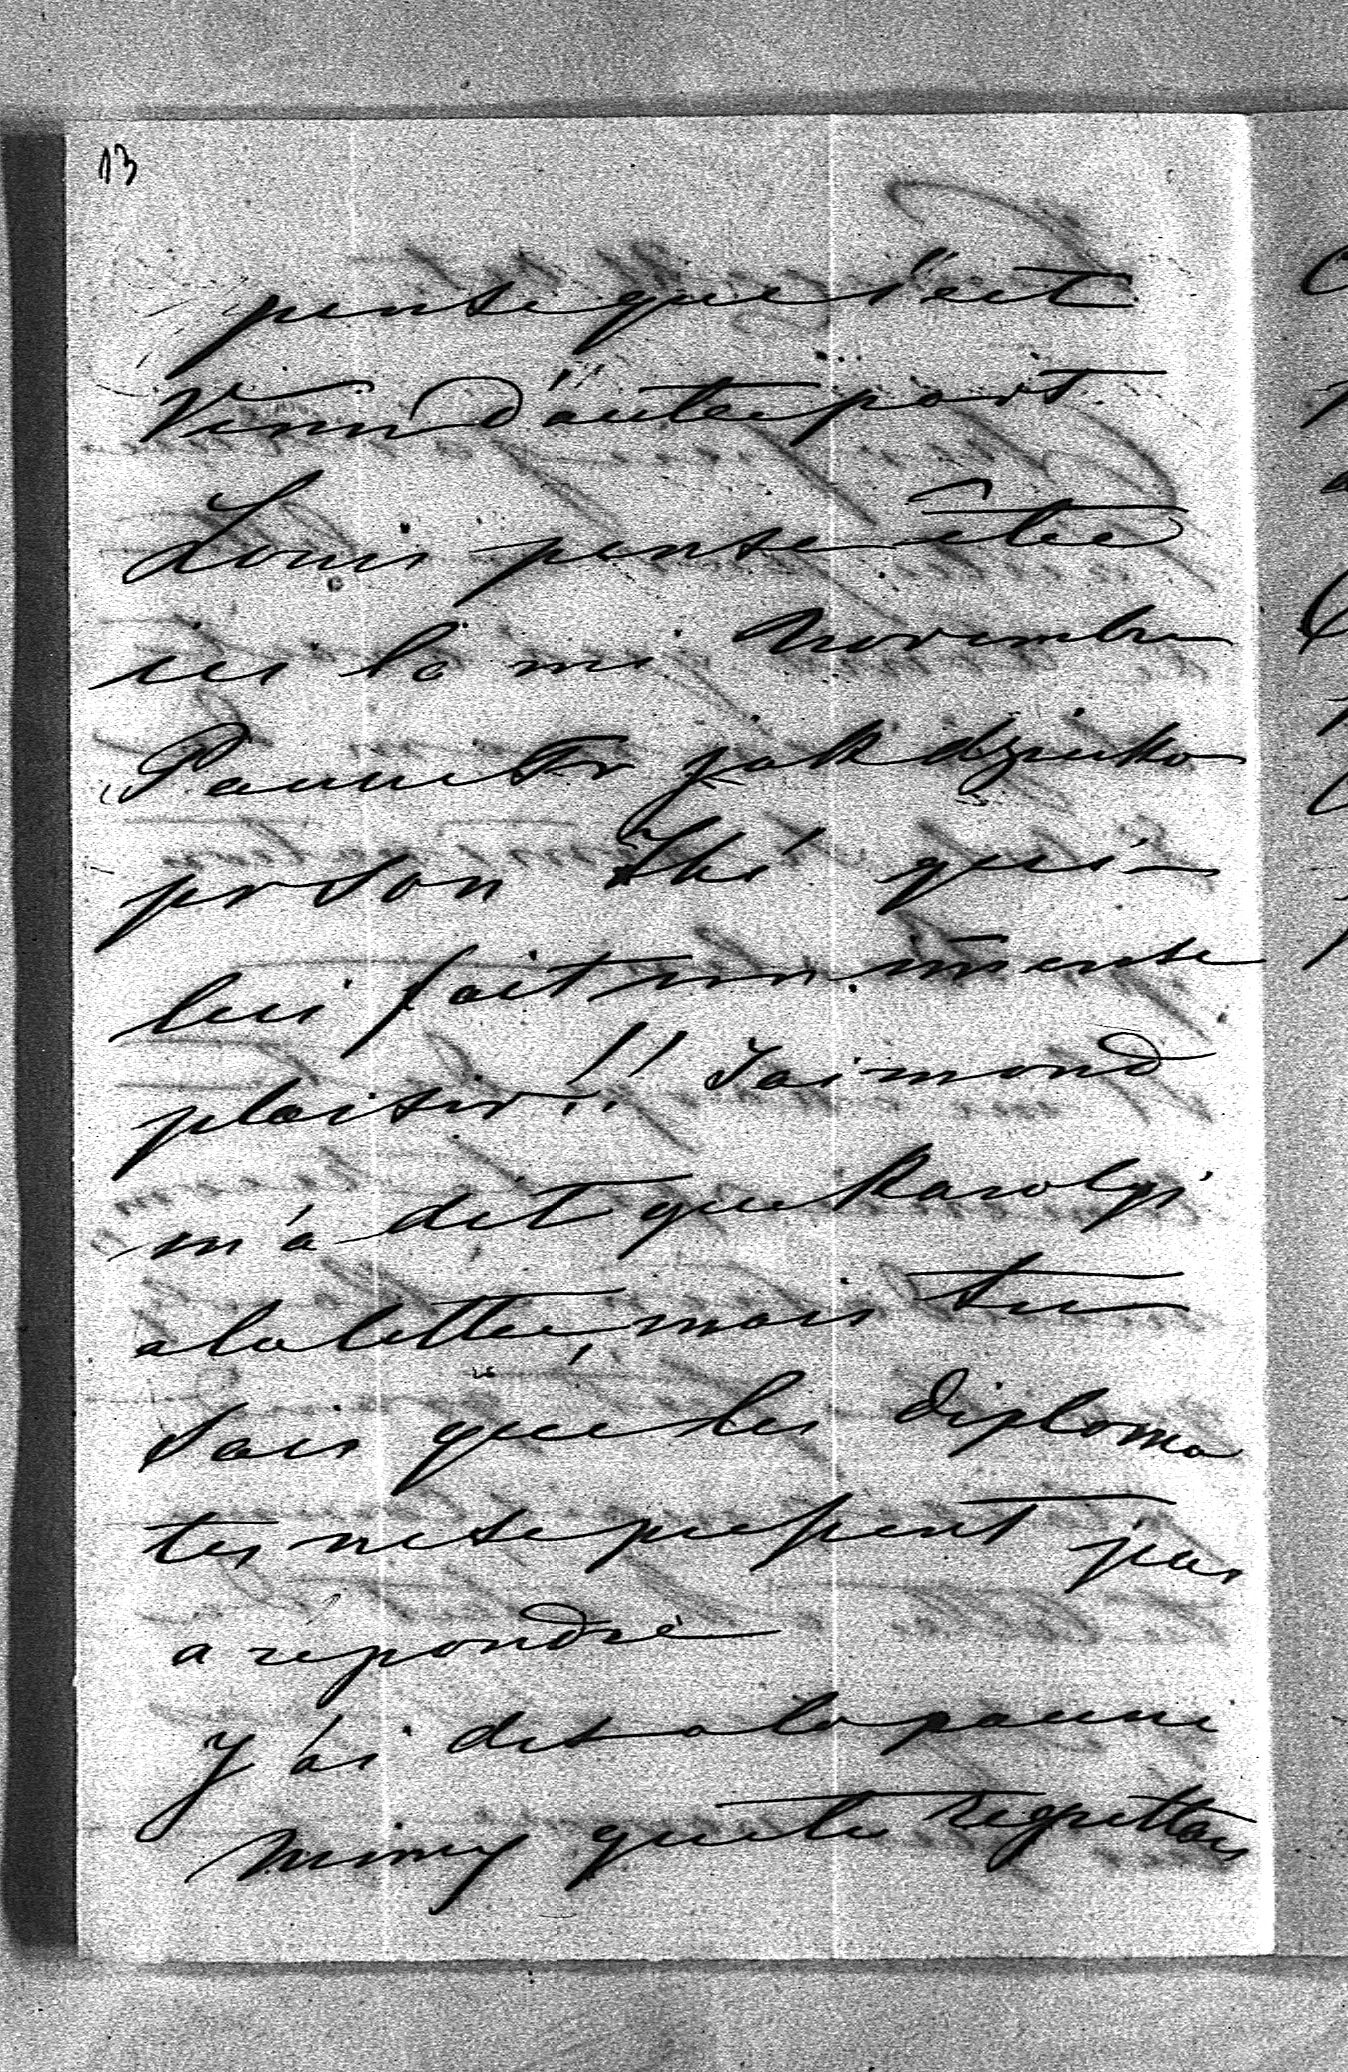 13
pense que s'est
venu d'autre part
Louis pense être
ici la mi novembre
Pauner jak dziuko
pr son thé qui
lui fait un immense
plaisir!! Saimond
m'a dit que Karolyi
a la lettre, mais tu
sais que les diploma
tes ne se pressent pas
a répondre
y ai dit a la pauvre
Mimy que tu regrettais